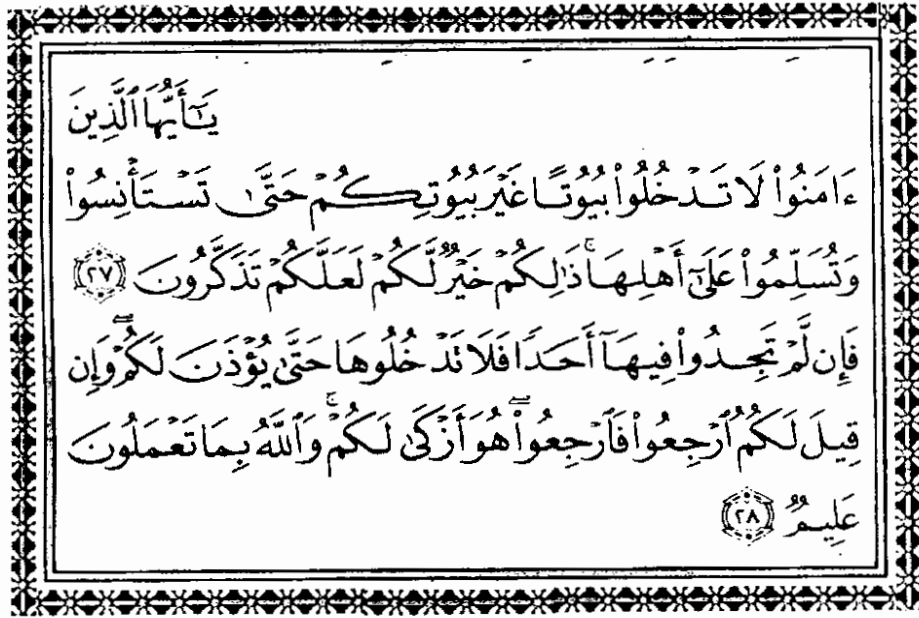 يَـٰٓأَيُّهَا ٱلَّذِينَ
ءَامَنُوا۟ لَا تَدْخُلُوا۟ بُيُوتًا غَيْرَ بُيُوتِكُمْ حَتَّىٰ تَسْتَأْنِسُوا۟
وَتُسَلِّمُوا۟ عَلَىٰٓ أَهْلِهَا ۚ ذَٰلِكُمْ خَيْرٌ لَّكُمْ لَعَلَّكُمْ تَذَكَّرُونَ ٢٧
فَإِن لَّمْ تَجِدُوا۟ فِيهَآ أَحَدًا فَلَا تَدْخُلُوهَا حَتَّىٰ يُؤْذَنَ لَكُمْ ۖ وَإِن
قِيلَ لَكُمُ ٱرْجِعُوا۟ فَٱرْجِعُوا۟ ۖ هُوَ أَزْكَىٰ لَكُمْ ۚ وَٱللَّهُ بِمَا تَعْمَلُونَ
عَلِيمٌ ٢٨